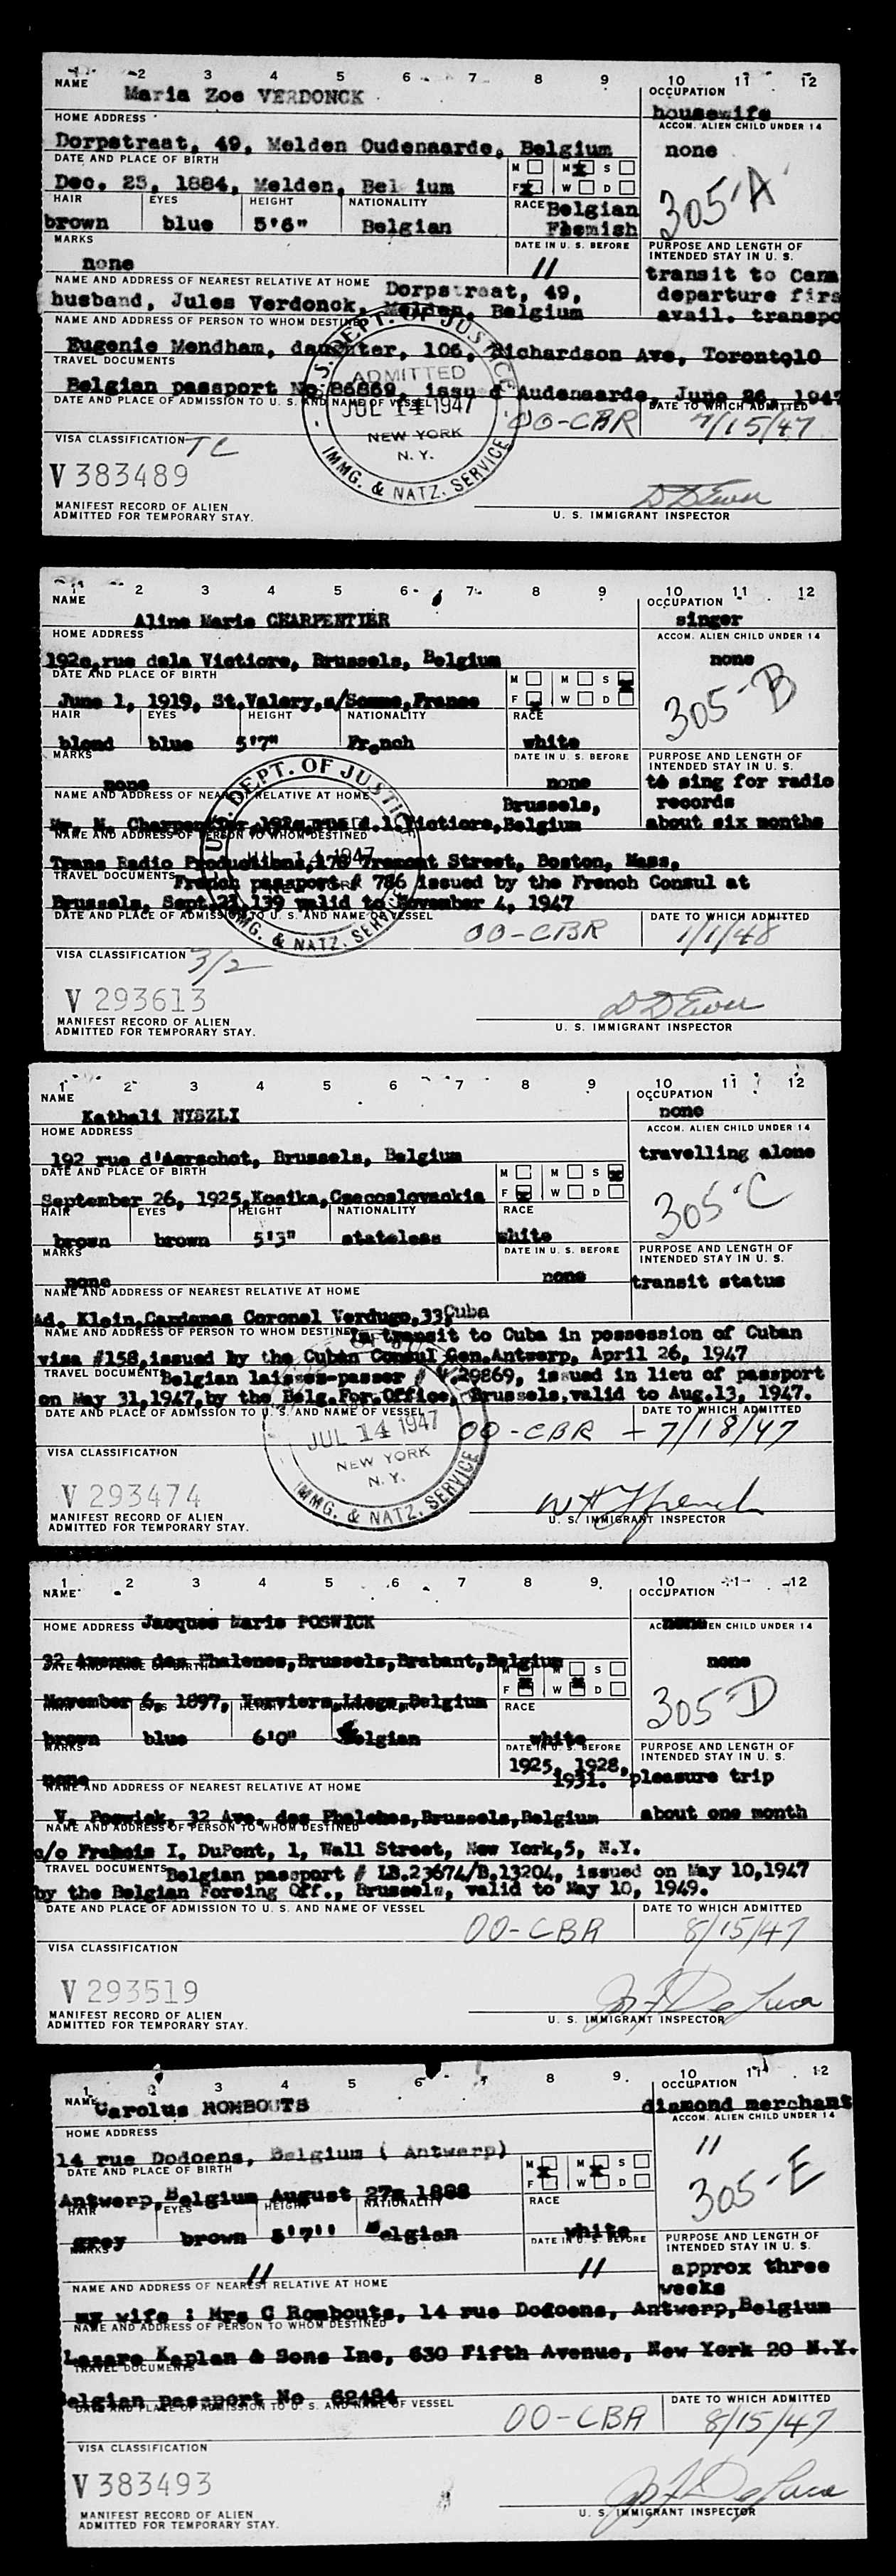 1 2 3 4 5 6 7 8 9 10 11 12
NAME OCCUPATION
Maria Zoe VERDONCK housewife
HOME ADDRESS ACCOM. ALIEN CHILD UNDER 14
Dorpstraat, 49, Melden Oudenaarde, Belgium none
DATE AND PLACE OF BIRTH M M S
Dec. 23, 1884, Melden, Bel ium F W D 305-A
HAIR EYES HEIGHT NATIONALITY RACE Belgian
brown blue 5'6" Belgian Flemish
MARKS DATE IN U. S. BEFORE PURPOSE AND LENGTH OF INTENDED STAY IN U. S.
none // transit to Cana
NAME AND ADDRESS OF NEAREST RELATIVE AT HOME Dorpstraat, 49, departure firs
husband, Jules Verdonck, Melden, Belgium avail. transpo
NAME AND ADDRESS OF PERSON TO WHOM DESTINED
Eugenie Mendham, daughter, 106, Richardson Ave, Toronto10
TRAVEL DOCUMENTS
Belgian passport No 86869, issu d Audenaarde, June 26, 1947
DATE AND PLACE OF ADMISSION TO U. S. AND NAME OF VESSEL DATE TO WHICH ADMITTED
00-CBR 7/15/47
U. S. DEPT. OF JUSTICE ADMITTED JUL 14 1947 NEW YORK N. Y. IMMG. & NATZ. SERVICE
VISA CLASSIFICATION TC
V 383489
MANIFEST RECORD OF ALIEN
ADMITTED FOR TEMPORARY STAY. U. S. IMMIGRANT INSPECTOR
1 2 3 4 5 6 7 8 9 10 11 12
NAME OCCUPATION
Aline Marie CHARPENTIER singer
HOME ADDRESS ACCOM. ALIEN CHILD UNDER 14
192c,rue dela Victiore, Brussels, Belgium none
DATE AND PLACE OF BIRTH M M S
June 1, 1919, St.Valery,s/Somme,France F W D 305-B
HAIR EYES HEIGHT NATIONALITY RACE
blond blue 5'7" French white
MARKS DATE IN U. S. BEFORE PURPOSE AND LENGTH OF INTENDED STAY IN U. S.
none none to sing for radio
NAME AND ADDRESS OF NEAREST RELATIVE AT HOME Brussels, records
Mr. M. Charpentier,192c,rue d.l.Victiore,Belgium about six months
NAME AND ADDRESS OF PERSON TO WHOM DESTINED
Trans Radio Productions,178 Tremont Street, Boston, Mass,
TRAVEL DOCUMENTS French passport # 786 issued by the French Consul at
Brussels, Sept.21,139 valid to November 4, 1947
DATE AND PLACE OF ADMISSION TO U. S. AND NAME OF VESSEL DATE TO WHICH ADMITTED
00-CBR 1/1/48
U. S. DEPT. OF JUSTICE 1947 IMMG. & NATZ. SERV
VISA CLASSIFICATION 3/2
V 293613
MANIFEST RECORD OF ALIEN
ADMITTED FOR TEMPORARY STAY. U. S. IMMIGRANT INSPECTOR
1 2 3 4 5 6 7 8 9 10 11 12
NAME OCCUPATION
Kathali NISZLI none
HOME ADDRESS ACCOM. ALIEN CHILD UNDER 14
192 rue d'Aerschot, Brussels, Belgium travelling alone
DATE AND PLACE OF BIRTH M M S
September 26, 1925,Kosika,Czecoslovackia F W D 305-C
HAIR EYES HEIGHT NATIONALITY RACE
brown brown 5'3" stateless white
MARKS DATE IN U. S. BEFORE PURPOSE AND LENGTH OF INTENDED STAY IN U. S.
none none transit status
NAME AND ADDRESS OF NEAREST RELATIVE AT HOME
Ad. Klein,Cardenas Coronel Verdugo,33,Cuba
NAME AND ADDRESS OF PERSON TO WHOM DESTINED In transit to Cuba in possession of Cuban
visa #158,issued by the Cuban Consul Gen.Antwerp, April 26, 1947
TRAVEL DOCUMENT Belgian laisses-passer # V.29869, issued in lieu of passport
on May 31,1947,by the Belg.For.Office, Brussels,valid to Aug.13, 1947.
DATE AND PLACE OF ADMISSION TO U. S. AND NAME OF VESSEL DATE TO WHICH ADMITTED
00-CBR - 7/18/47
JUL 14 1947 NEW YORK N. Y. IMMG. & NATZ. SERVICE
VISA CLASSIFICATION
V 293474
MANIFEST RECORD OF ALIEN
ADMITTED FOR TEMPORARY STAY. U. S. IMMIGRANT INSPECTOR
1 2 3 4 5 6 7 8 9 10 11 12
NAME OCCUPATION
HOME ADDRESS Jacques Marie POSWICK none ACCOM. ALIEN CHILD UNDER 14
32 Avenue des Phalenes,Brussels,Brabant,Belgium none
DATE AND PLACE OF BIRTH M M S
November 6, 1897, Verviers,Liege,Belgium F W D 305-D
HAIR EYES HEIGHT RACE
brown blue 6'0" Belgian white
MARKS DATE IN U. S. BEFORE PURPOSE AND LENGTH OF INTENDED STAY IN U. S.
none 1925, 1928, 1931. pleasure trip
NAME AND ADDRESS OF NEAREST RELATIVE AT HOME
V. Poswick, 32 Ave. des Phalenes,Brussels,Belgium about one month
NAME AND ADDRESS OF PERSON TO WHOM DESTINED
c/o Francis I. DuPont, 1, Wall Street, New York,5, N.Y.
TRAVEL DOCUMENTS Belgian passport # LB.23674/B.13204, issued on May 10,1947
by the Belgian Foreing Off., Brussels, valid to May 10, 1949.
DATE AND PLACE OF ADMISSION TO U. S. AND NAME OF VESSEL DATE TO WHICH ADMITTED
00-CBR 8/15/47
VISA CLASSIFICATION
V 293519
MANIFEST RECORD OF ALIEN
ADMITTED FOR TEMPORARY STAY. U. S. IMMIGRANT INSPECTOR
1 2 3 4 5 6 7 8 9 10 11 12
NAME OCCUPATION
Carolus ROMBOUTS diamond merchant
HOME ADDRESS ACCOM. ALIEN CHILD UNDER 14
14 rue Dodoens, Belgium ( Antwerp) //
DATE AND PLACE OF BIRTH M M S
Antwerp,Belgium August 27, 1888 F W D 305-E
HAIR EYES HEIGHT NATIONALITY RACE
grey brown 5'7'' Belgian white
MARKS DATE IN U. S. BEFORE PURPOSE AND LENGTH OF INTENDED STAY IN U. S.
// // approx three weeks
NAME AND ADDRESS OF NEAREST RELATIVE AT HOME
my wife : Mrs C Rombouts, 14 rue Dodoens, Antwerp,Belgium
NAME AND ADDRESS OF PERSON TO WHOM DESTINED
Lazare Kaplan & Sons Inc, 630 Fifth Avenue, New York 20 N.Y.
TRAVEL DOCUMENTS
Belgian passport No 62484
DATE AND PLACE OF ADMISSION TO U. S. AND NAME OF VESSEL DATE TO WHICH ADMITTED
00-CBR 8/15/47
VISA CLASSIFICATION
V 383493
MANIFEST RECORD OF ALIEN
ADMITTED FOR TEMPORARY STAY. U. S. IMMIGRANT INSPECTOR